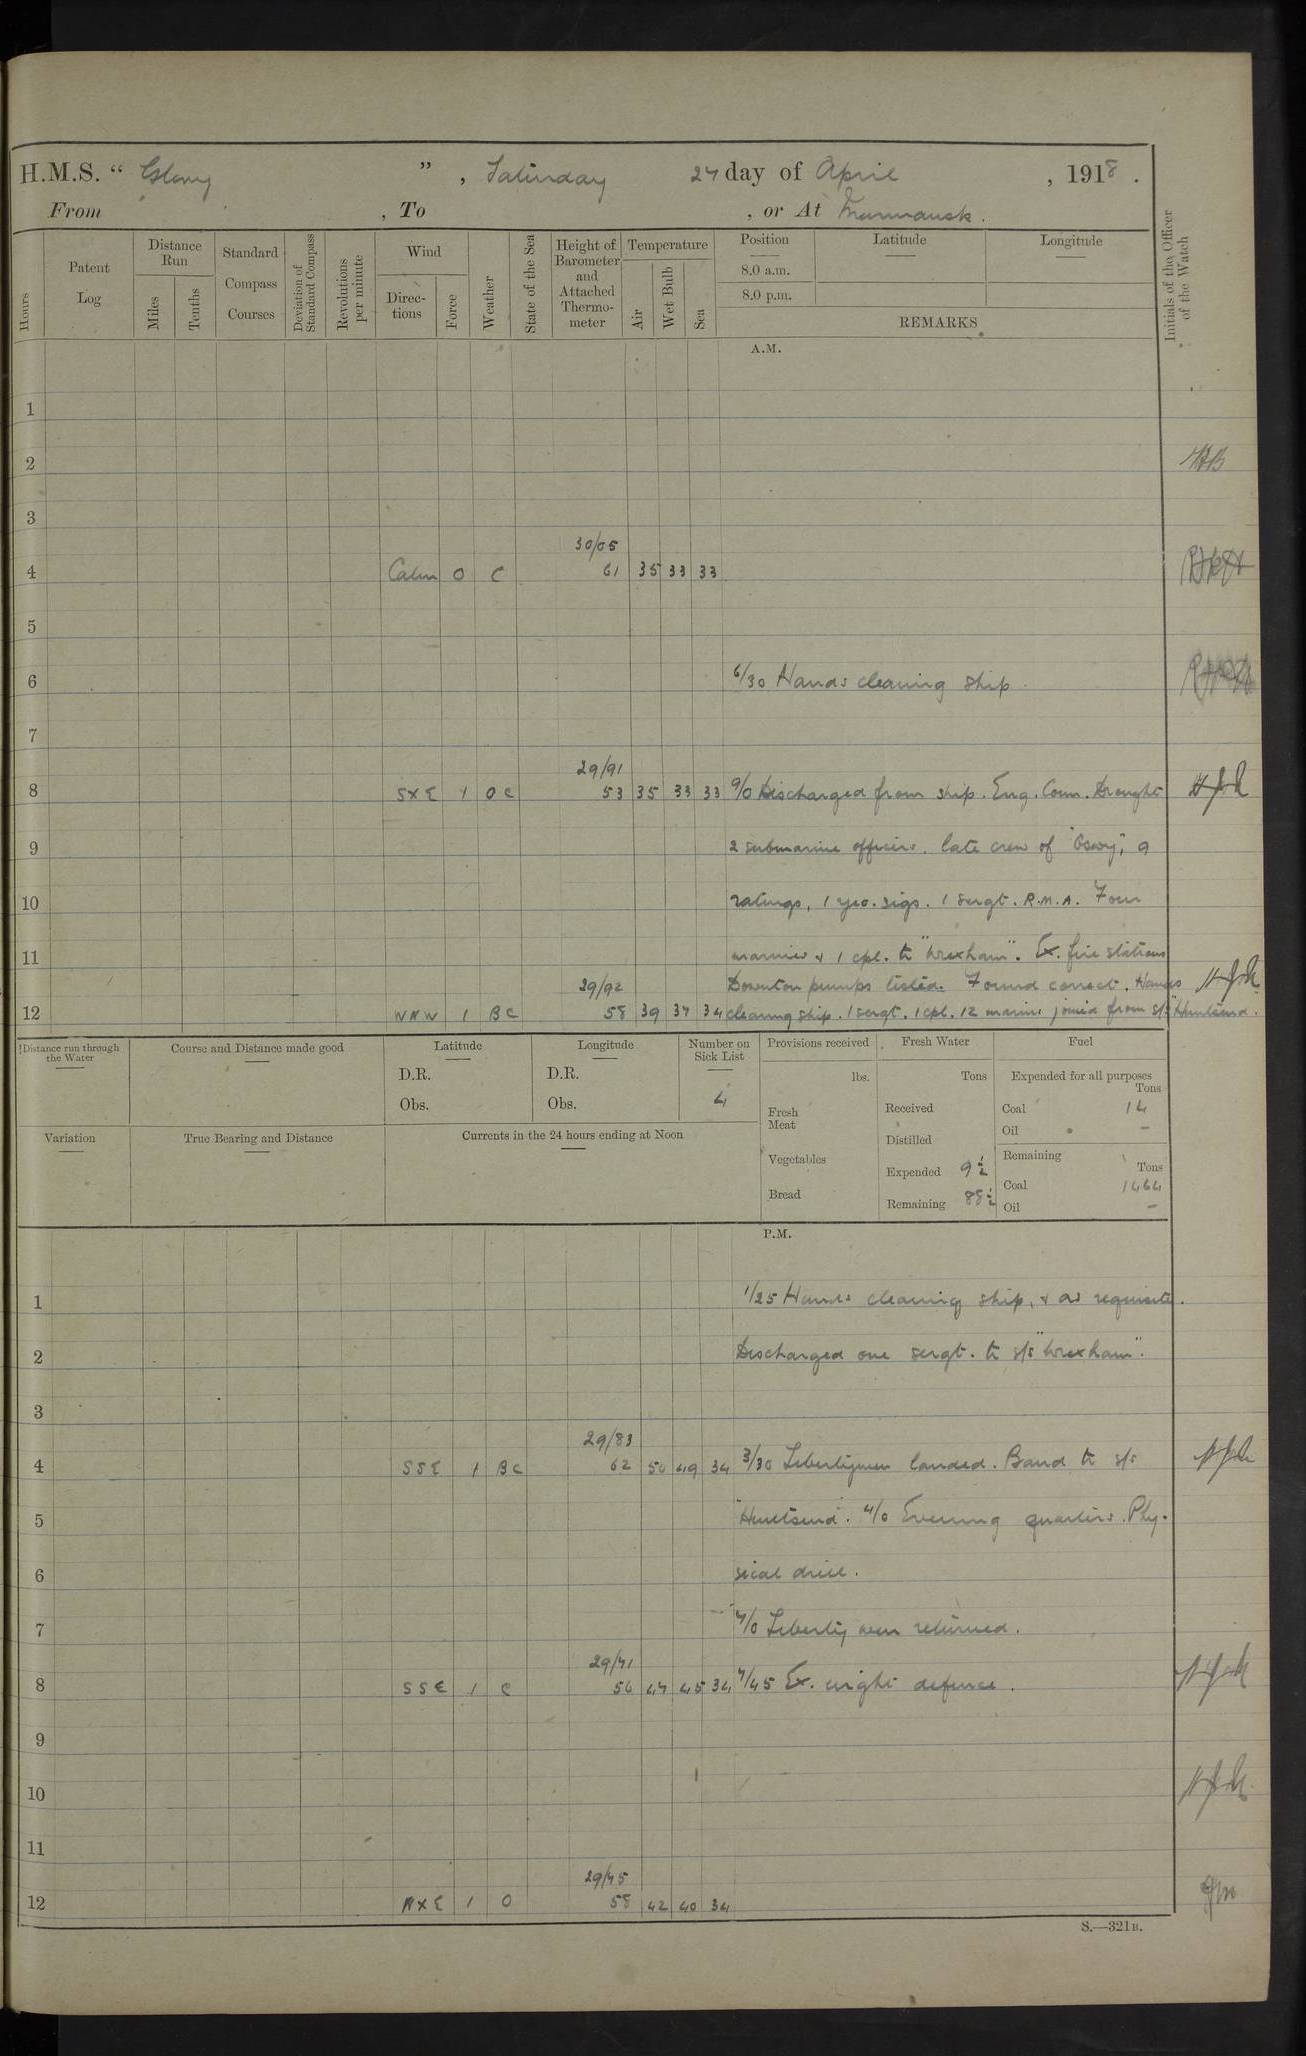 H.M.S. " Glory ", Saturday 27 day of April, 1918.
From , To , or At Murmansk.
Hours
Patent Log
Distance Run
Miles
Tenths
Standard Compass Courses
Deviation of Standard Compass
Revolutions per minute
Wind
Directions
Force
Weather
State of the Sea
Height of Barometer and Attached Thermometer
Temperature
Air
Wet Bulb
Sea
Position
8.0 a.m.
8.0 p.m.
Latitude
Longitude
REMARKS
Initials of the Officer of the Watch
A.M.
1
2
3
30/05
4 Calm 0 C 61 35 33 33
5
6 6/30 Hands cleaning ship.
7
29/91
8 SXE 1 OC 53 35 33 33 9/0 Discharged from ship. Eng. Com. Drought
9 2 submarine officers. late crew of "Oswy", 9
10 ratings, 1 yeo. sigs. 1 sergt. R.M.A. Four
11 marines & 1 cpl. to "Wrexham". Ex. fire stations
29/92 Downton pumps tested. Found correct. Hands
12 NNW 1 BC 58 39 37 34 cleaning ship. 1 sergt. 1 cpl. 12 marines joined from s/s "Huntsend".
Distance run through the Water
Course and Distance made good
Latitude
D.R.
Obs.
Longitude
D.R.
Obs.
Number on Sick List
4
Provisions received
lbs.
Fresh Meat
Vegetables
Bread
Fresh Water
Tons
Received
Distilled
Expended 9½
Remaining 88½
Fuel
Expended for all purposes
Tons
Coal 14
Oil –
Remaining
Tons
Coal 1464
Oil –
Variation
True Bearing and Distance
Currents in the 24 hours ending at Noon
P.M.
1 1/25 Hands cleaning ship, & as requisite.
2 Discharged one sergt. to s/s "Wrexham".
3
29/83
4 SSE 1 BC 62 50 49 34 3/30 Libertymen landed. Band to s/s
5 "Huntsend". 4/0 Evening quarters. Phy-
6 sical drill.
7 7/0 Liberty men returned.
29/71
8 SSE 1 C 56 47 45 34 7/45 Ex. night defence.
9
10
11
29/75
12 NXE 1 O 58 42 40 34
S.—321B.